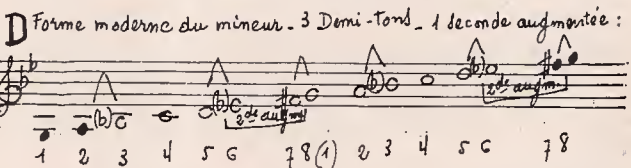 D Forme moderne du mineur_ 3 Demi-tons_ 1 seconde augmentée :
(b) (b) (b) (b)
2de augm 2de augm.
1 2 3 4 5 6 7 8 (1) 2 3 4 5 6 7 8